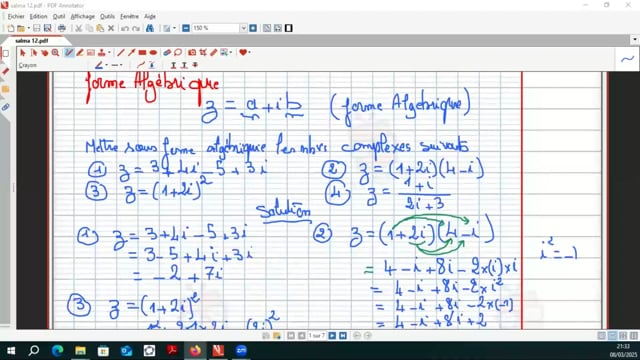 salma 12.pdf - PDF Annotator
Fichier Edition Outil Affichage Outils Fenêtre Aide
150 %
salma 12.pdf
Crayon
forme Algébrique
z = a + ib (forme Algébrique)
Mettre sous forme algébrique les nbrs complexes suivants
① z = 3 + 4i - 5 + 3i ② z = (1+2i)(4-i)
③ z = (1+2i)² ④ z = 1+i / 2i+3
Solution
① z = 3 + 4i - 5 + 3i ② z = (1+2i)(4-i)
= 3 - 5 + 4i + 3i = 4 - i + 8i - 2×(i)×i i² = -1
= -2 + 7i = 4 - i + 8i - 2×i²
③ z = (1+2i)² = 4 - i + 8i - 2×(-1)
= 4 - i + 8i + 2
1 sur 7
21:33
08/03/2025